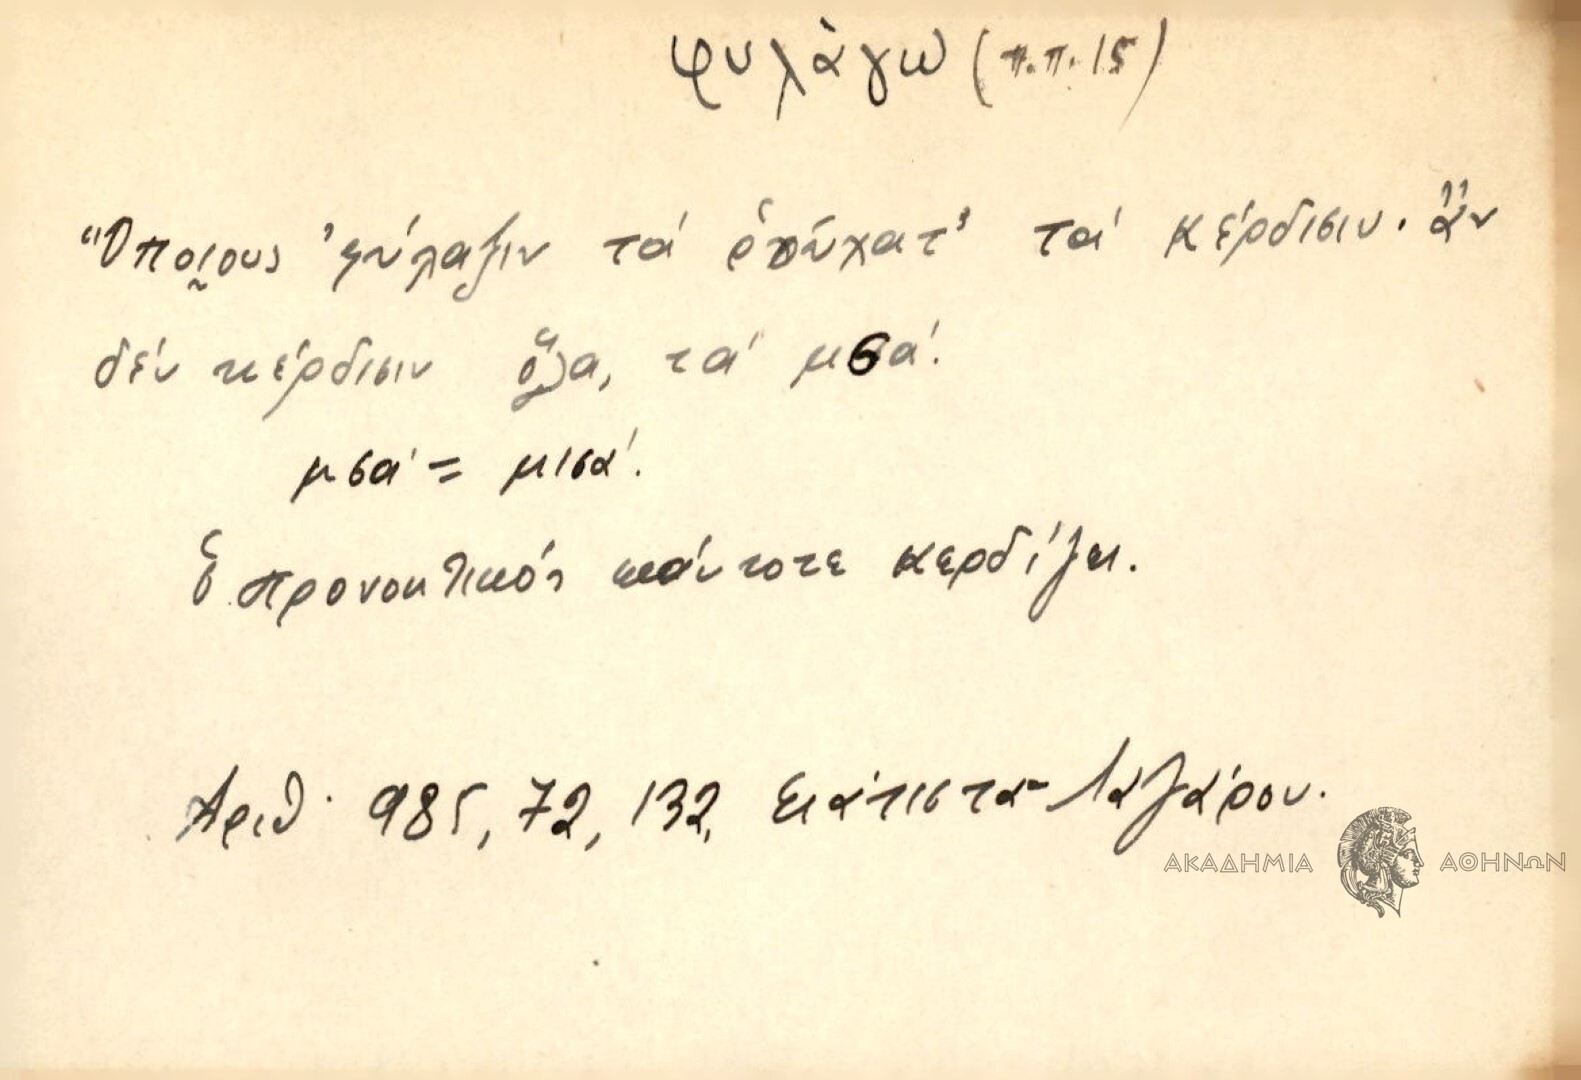 φυλάγω (π.π. 15)
Ὅποι̯ους 'φύλαξιν τά ῥοῦχατ' τά κέρδισιν. ἄν
δέν κέρδισιν ὅλα, τά μσά.
μσά = μισά.
Ὁ προνοητικός πάντοτε κερδίζει.
Ἀριθ. 985, 72, 132, Σιάτιστα - Λαζάρου.
ΑΚΑΔΗΜΙΑ ΑΘΗΝΩΝ